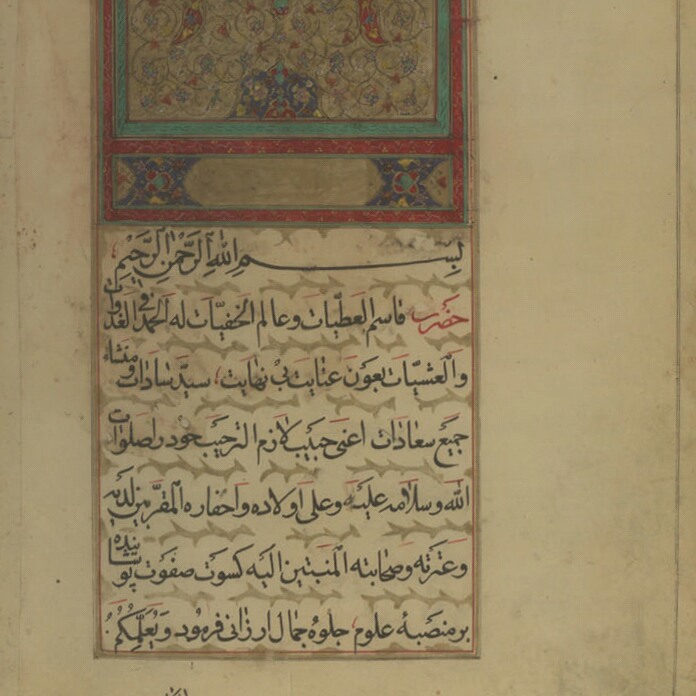 بسم الله الرحمن الرحيم
حضرت قاسم العطيات وعالم الخفيات له الحمد في الغدوات
والعشيات بعون عنايت بى نهايت سيد سادات ومنشاء
جميع سعادات اعنى حبيب لازم الترحيب خود را صلوات
الله وسلامه عليه وعلى اولاده واحفاره المقربين لديه
وعترته وصحابته المنبتين اليه كسوت صفوت پوشانيده
بر منصبه علوم جلوه جمال ارزانى فرمود ويعلمكم